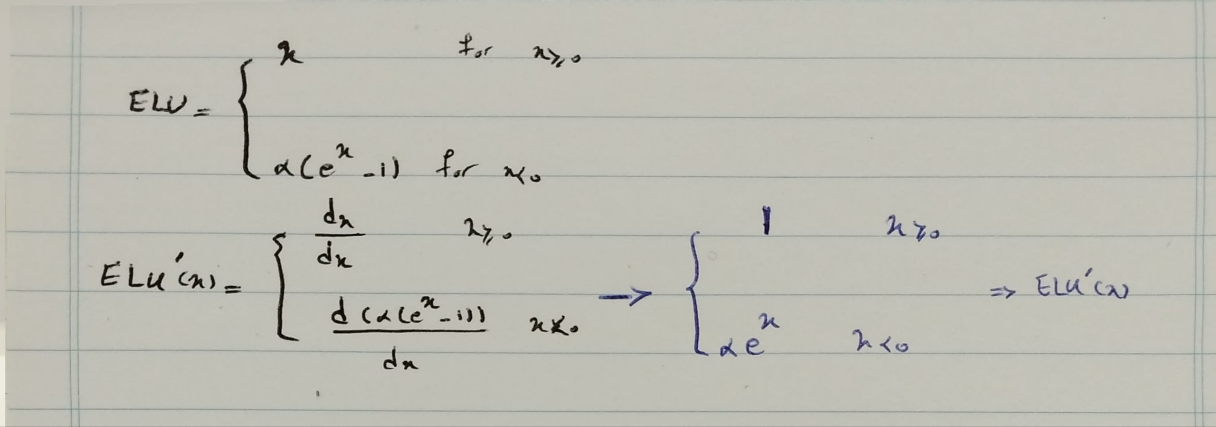 ELU = { x for x ≥ 0
α(e^x - 1) for x < 0
ELU'(x) = { dx/dx x ≥ 0 → { 1 x ≥ 0
d(α(e^x - 1))/dx x < 0 αe^x x < 0 ⇒ ELU'(x)